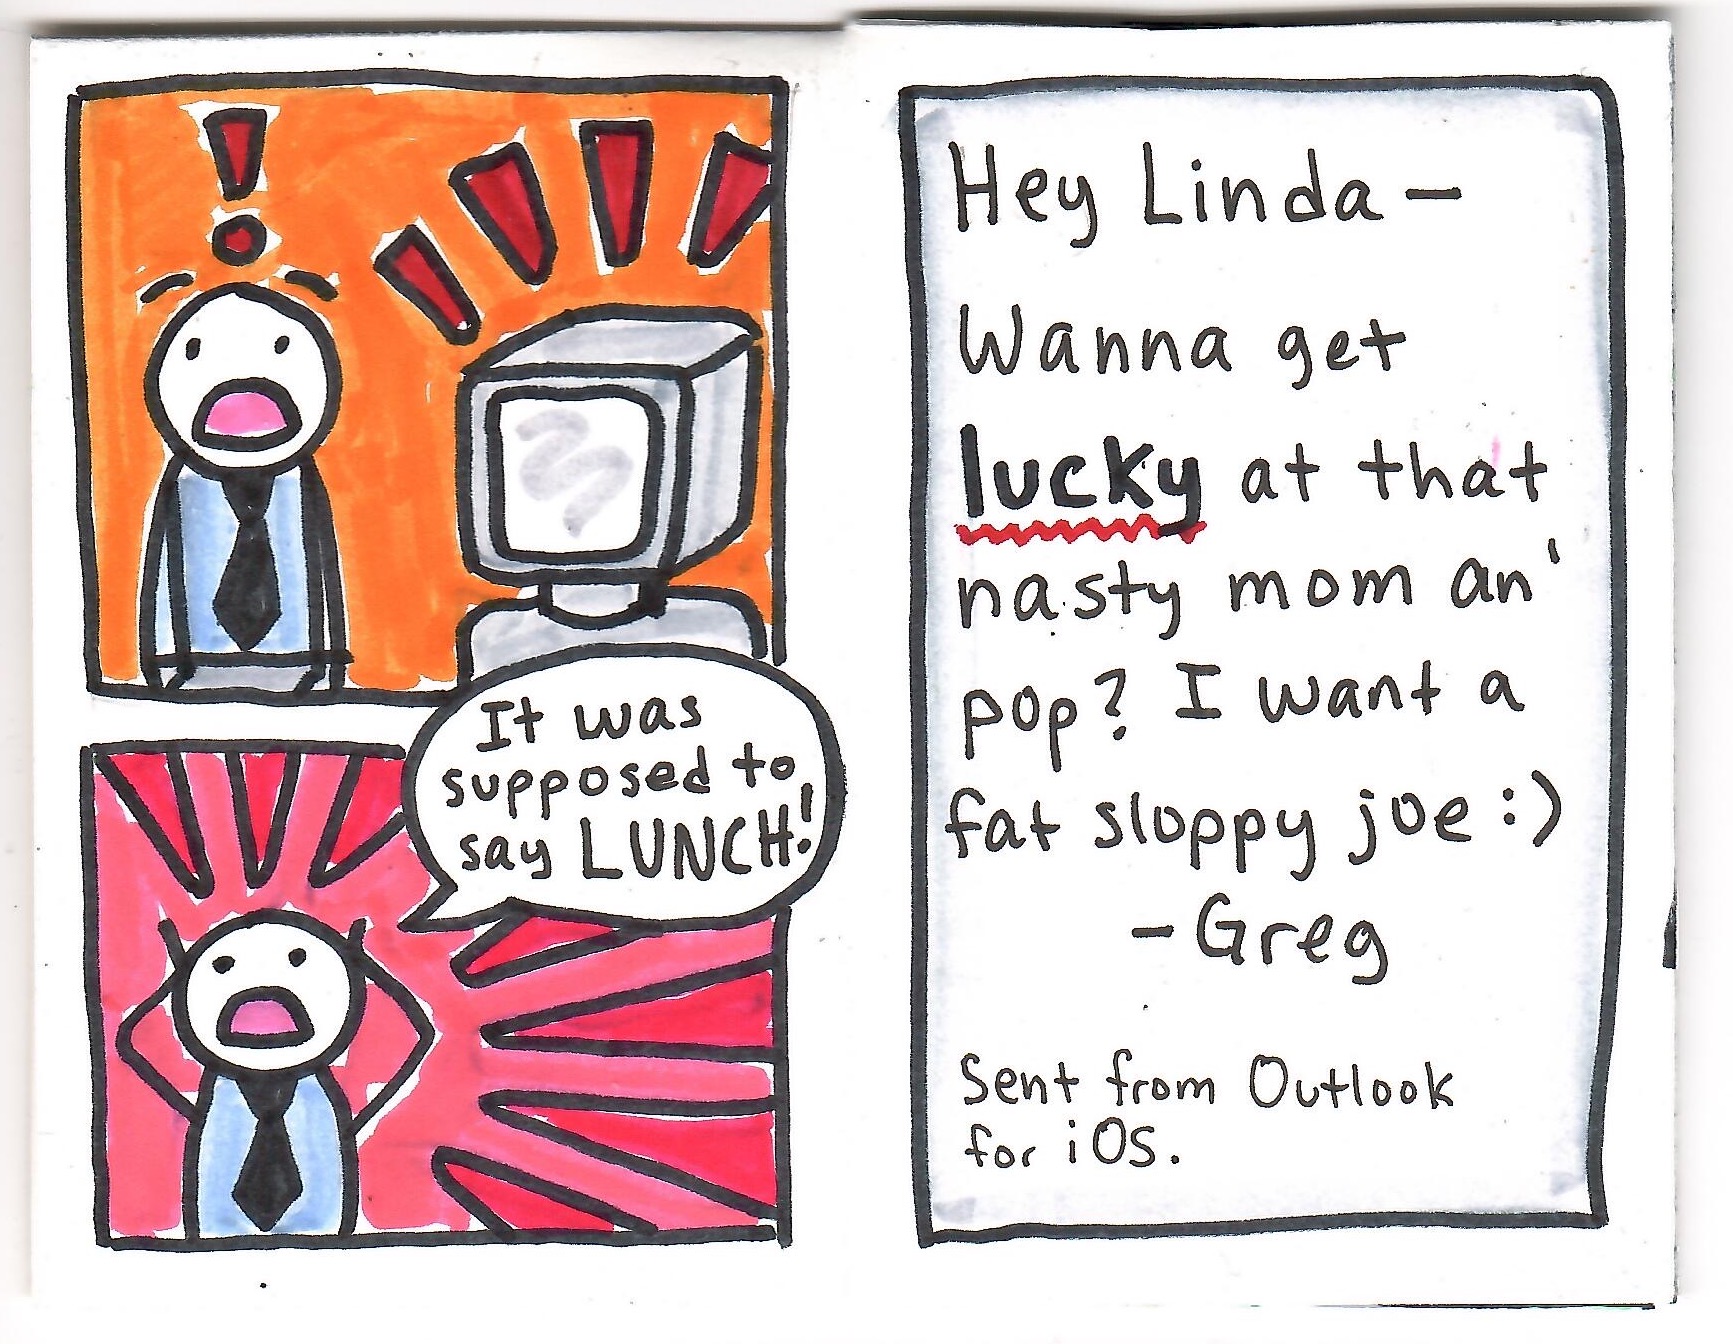 It was
supposed to
say LUNCH!
Hey Linda –
Wanna get
lucky at that
nasty mom an'
pop? I want a
fat sloppy joe :)
- Greg
Sent from Outlook
for iOS.